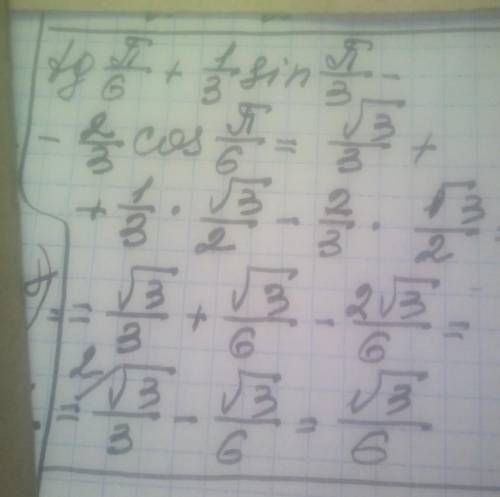 tg π/6 + 1/3 sin π/3 -
- 2/3 cos π/6 = √3/3 +
+ 1/3 · √3/2 - 2/3 · √3/2 =
= √3/3 + √3/6 - 2√3/6 =
= 2/ √3/3 - √3/6 = √3/6